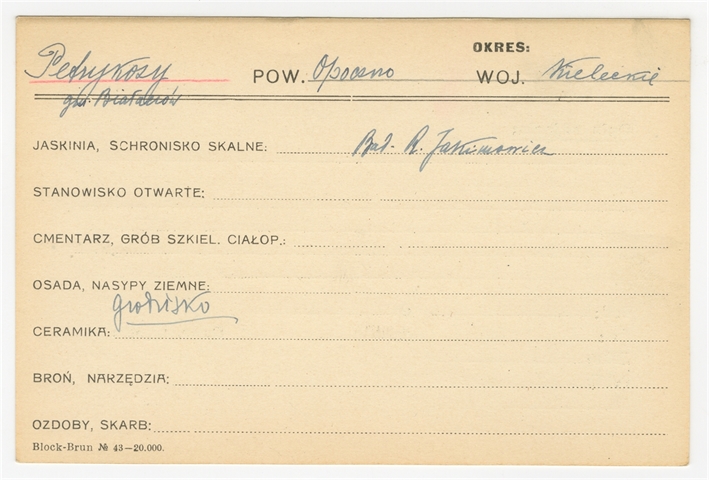 OKRES:
Petrykozy POW. Opoczno WOJ. Kieleckie
gm. Białaczów
JASKINIA, SCHRONISKO SKALNE: Bad. R. Jakimowicz
STANOWISKO OTWARTE:
CMENTARZ, GRÓB SZKIEL. CIAŁOP.:
OSADA, NASYPY ZIEMNE:
grodzisko
CERAMIKA:
BROŃ, NARZĘDZIA:
OZDOBY, SKARB:
Block-Brun № 43—20.000.